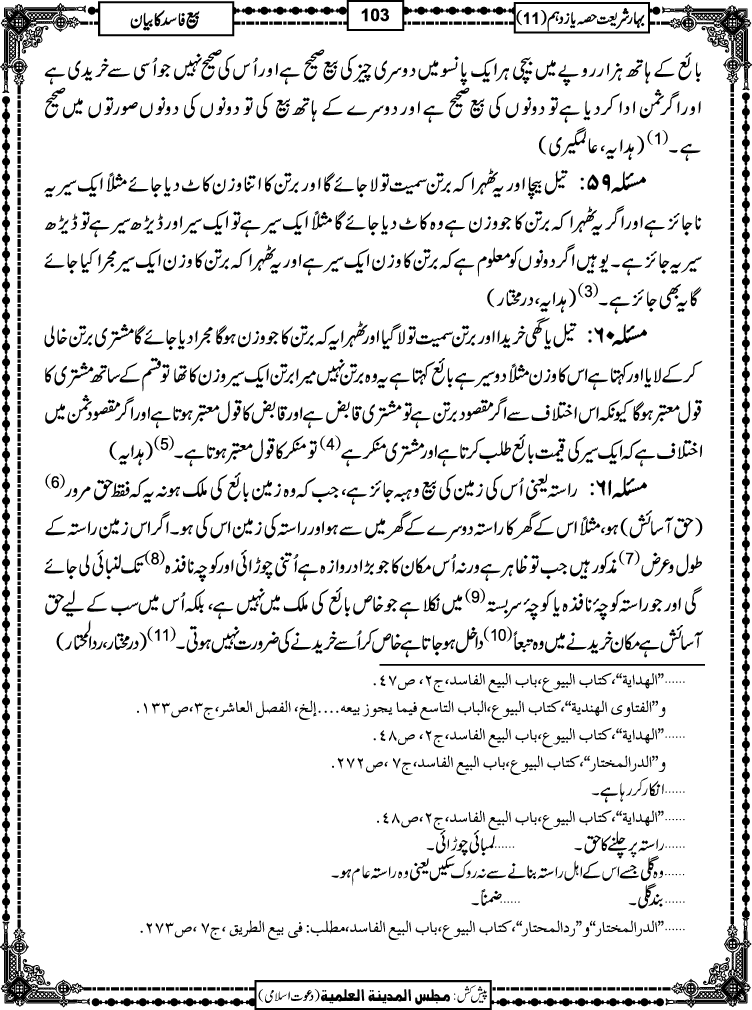 بہارِ شریعت حصہ یازدہم (11)
103
بیع فاسد کا بیان
بائع کے ہاتھ ہزار روپے میں بیچی ہر ایک پانسو میں دوسری چیز کی بیع صحیح ہے اور اُس کی صحیح نہیں جو اُسی سے خریدی ہے
اور اگر ثمن ادا کر دیا ہے تو دونوں کی بیع صحیح ہے اور دوسرے کے ہاتھ بیع کی تو دونوں کی دونوں صورتوں میں صحیح
ہے۔(1) (ہدایہ، عالمگیری)
مسئلہ ۵۹: تیل بیچا اور یہ ٹھہرا کہ برتن سمیت تولا جائے گا اور برتن کا اتنا وزن کاٹ دیا جائے مثلاً ایک سیر یہ
ناجائز ہے اور اگر یہ ٹھہرا کہ برتن کا جو وزن ہے وہ کاٹ دیا جائے گا مثلاً ایک سیر ہے تو ایک سیر اور ڈیڑھ سیر ہے تو ڈیڑھ
سیر یہ جائز ہے۔ یوہیں اگر دونوں کو معلوم ہے کہ برتن کا وزن ایک سیر ہے اور یہ ٹھہرا کہ برتن کا وزن ایک سیر مجرا کیا جائے
گا یہ بھی جائز ہے۔(3) (ہدایہ، درمختار)
مسئلہ ۶۰: تیل یا گھی خریدا اور برتن سمیت تولا گیا اور ٹھہرا یہ کہ برتن کا جو وزن ہوگا مجرا دیا جائے گا مشتری برتن خالی
کر کے لایا اور کہتا ہے اس کا وزن مثلاً دو سیر ہے بائع کہتا ہے یہ وہ برتن نہیں میرا برتن ایک سیر وزن کا تھا تو قسم کے ساتھ مشتری کا
قول معتبر ہوگا کیونکہ اس اختلاف سے اگر مقصود برتن ہے تو مشتری قابض ہے اور قابض کا قول معتبر ہوتا ہے اور اگر مقصود ثمن میں
اختلاف ہے کہ ایک سیر کی قیمت بائع طلب کرتا ہے اور مشتری منکر ہے (4) تو منکر کا قول معتبر ہوتا ہے۔(5) (ہدایہ)
مسئلہ ۶۱: راستہ یعنی اُس کی زمین کی بیع و ہبہ جائز ہے، جب کہ وہ زمین بائع کی ملک ہو نہ یہ کہ فقط حق مرور(6)
(حق آسائش) ہو، مثلاً اس کے گھر کا راستہ دوسرے کے گھر میں سے ہو اور راستہ کی زمین اس کی ہو۔ اگر اس زمین راستہ کے
طول و عرض (7) مذکور ہیں جب تو ظاہر ہے ورنہ اُس مکان کا جو بڑا دروازہ ہے اُتنی چوڑائی اور کوچہ نافذہ (8) تک لنبائی لی جائے
گی اور جو راستہ کوچۂ نافذہ یا کوچۂ سربستہ (9) میں نکلا ہے جو خاص بائع کی ملک میں نہیں ہے، بلکہ اُس میں سب کے لیے حق
آسائش ہے مکان خریدنے میں وہ تبعاً (10) داخل ہو جاتا ہے خاص کر اُسے خریدنے کی ضرورت نہیں ہوتی۔(11) (درمختار، ردالمحتار)
......"الھدایة"، کتاب البیوع، باب البیع الفاسد، ج۲، ص۴۷.
و "الفتاوی الھندیة"، کتاب البیوع، الباب التاسع فیما یجوز بیعہ....إلخ، الفصل العاشر، ج۳، ص۱۳۳.
......"الھدایة"، کتاب البیوع، باب البیع الفاسد، ج۲، ص۴۸.
و "الدرالمختار"، کتاب البیوع، باب البیع الفاسد، ج۷، ص۲۷۲.
......انکار کر رہا ہے۔
......"الھدایة"، کتاب البیوع، باب البیع الفاسد، ج۲، ص۴۸.
......راستہ پر چلنے کا حق۔ ......لمبائی چوڑائی۔
......وہ گلی جسے اس کے اہل راستہ بنانے سے نہ روک سکیں یعنی وہ راستہ عام ہو۔
......بند گلی۔ ......ضمناً۔
......"الدرالمختار" و "ردالمحتار"، کتاب البیوع، باب البیع الفاسد، مطلب: فی بیع الطریق، ج۷، ص۲۷۳.
پیش کش: مجلس المدینة العلمیة (دعوت اسلامی)